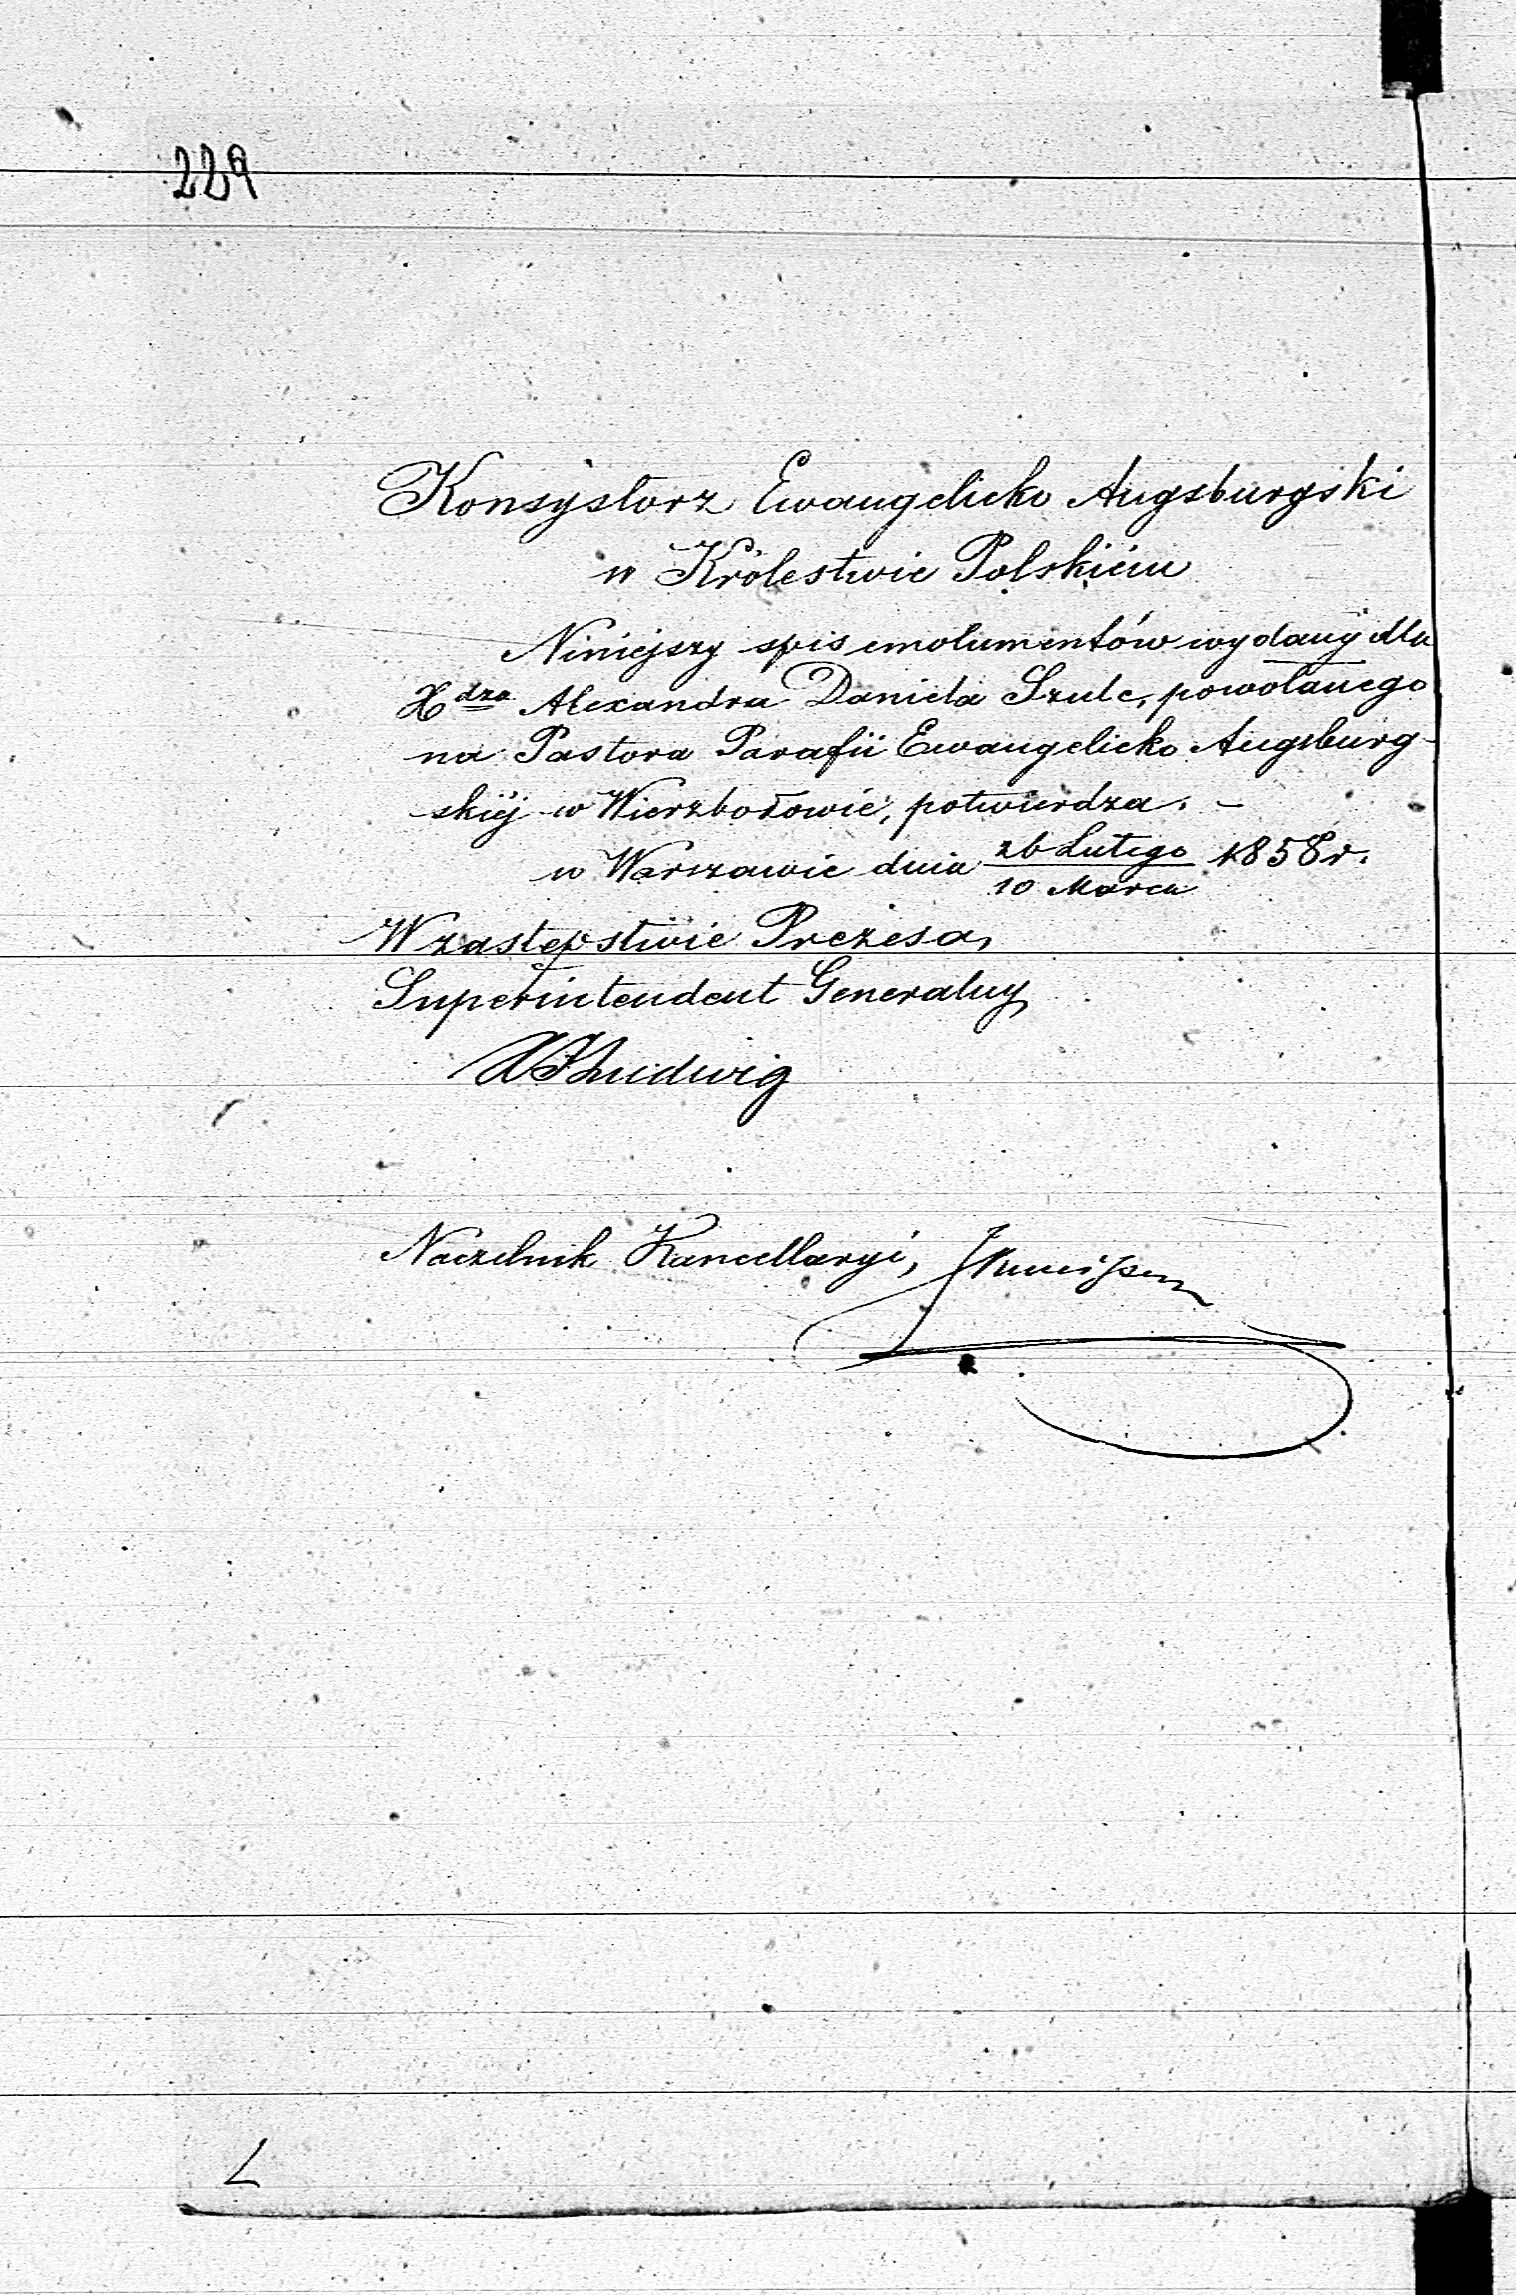 229
Konsystorz Ewangelicko Augsburgski
w Królestwie Polskiém
Niniejszy spis emolumentów wydany dla
Xdza Alexandra Daniela Szulc, powołanego
na Pastora Parafii Ewangelicko Augsburg-
skiéj w Wierzbołowie, potwierdza. –
w Warszawie dnia 26 Lutego / 10 Marca 1858 r.
W zastępstwie Prezesa,
Superintendent Generalny
Ludwig
Naczelnik Kancellaryi,